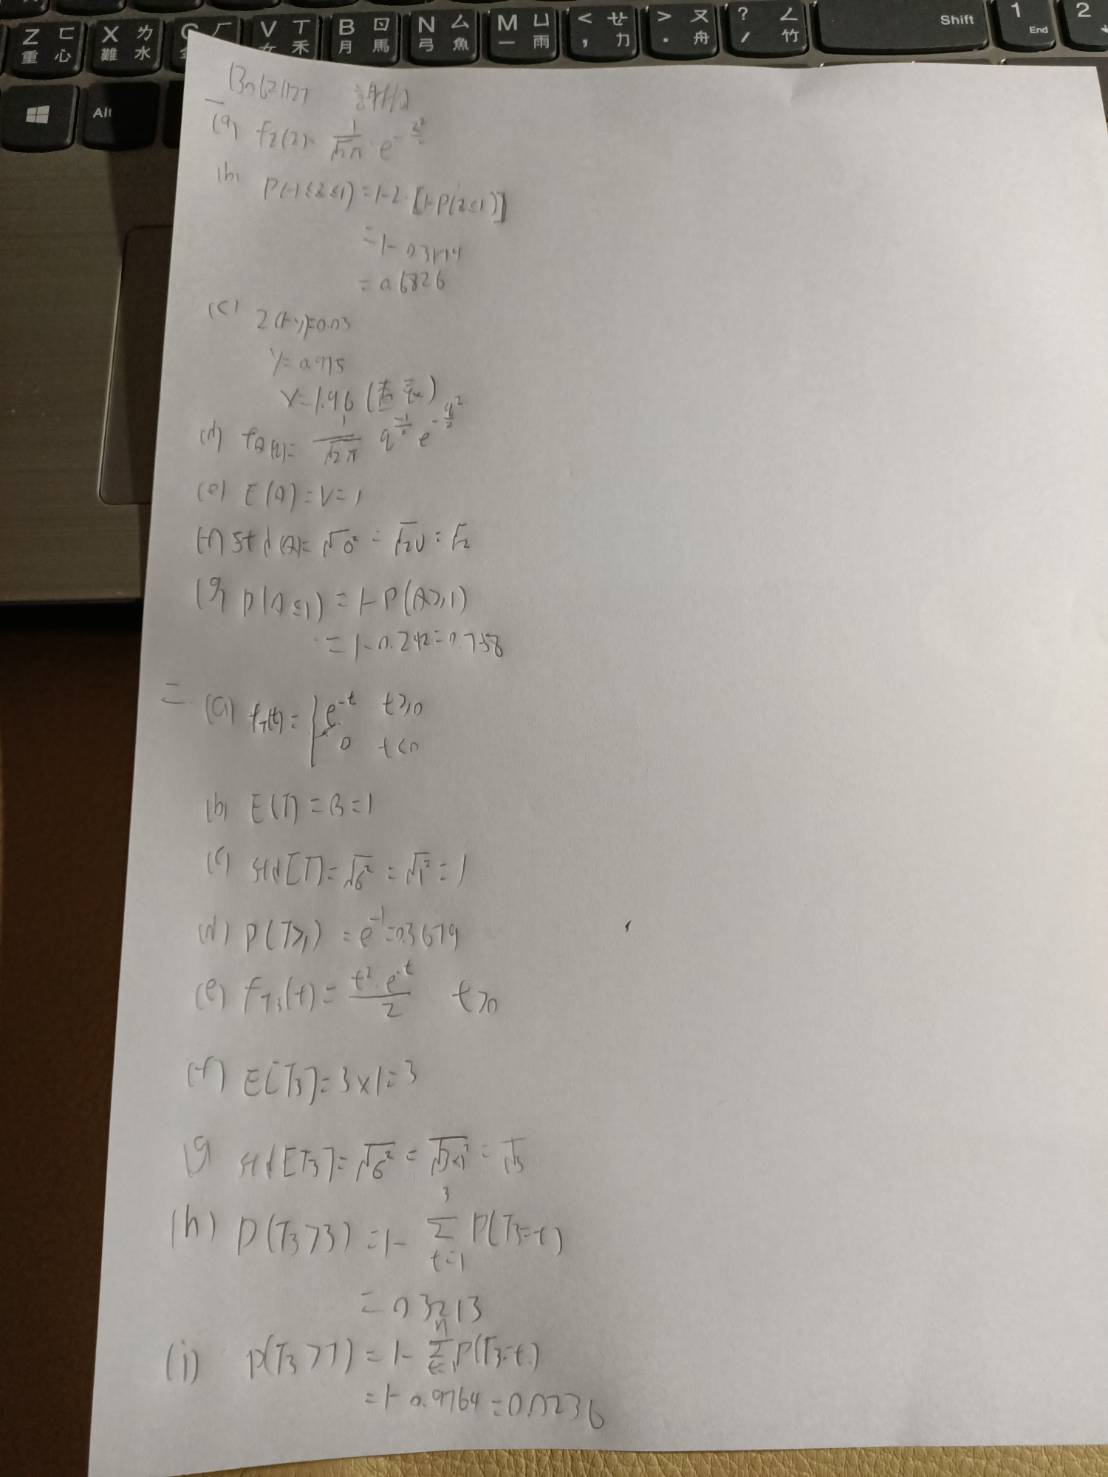 Z ㄈ 重 心
X ㄌ 難 水
V ㄒ 女 禾
B ㄖ 月 馬
N ㄙ 弓 魚
M ㄩ 一 雨
< ㄝ , 力
> ㄡ . 舟
? ㄥ / 竹
Shift
1 End
2
Alt
一
(a) fz(z)= 1/√2π e^-z²/2
(b) P(-1≤z≤1)=1-2·[1-P(z≤1)]
=1-0.3174
=0.6826
(c)
y=0.975
v=1.96 (查表)
(d) fQ(q)= 1/√2π q^-1/2 e^-q²/2
(e) E(Q)=V=1
(f) std(Q)=√σ²=√2v=√2
(g) P(Q≤1)=1-P(Q≥1)
=1-0.242=0.758
二 (a) fT(t)={ e^-t t≥0
0 t<0
(b) E(T)=B=1
(c) std[T]=√σ²=√1²=1
(d) P(T≥1)=e^-1=0.3679
(e) fT3(t)= t²·e^-t/2 t≥0
(f) E[T3]=3×1=3
(g) std[T3]=√σ²=√3×1²=√3
(h) P(T3>3)=1-Σ(t=1, 3) P(T3=t)
=0.3213
(i) P(T3>7)=1-Σ P(T3=t)
=1-0.9764=0.0236